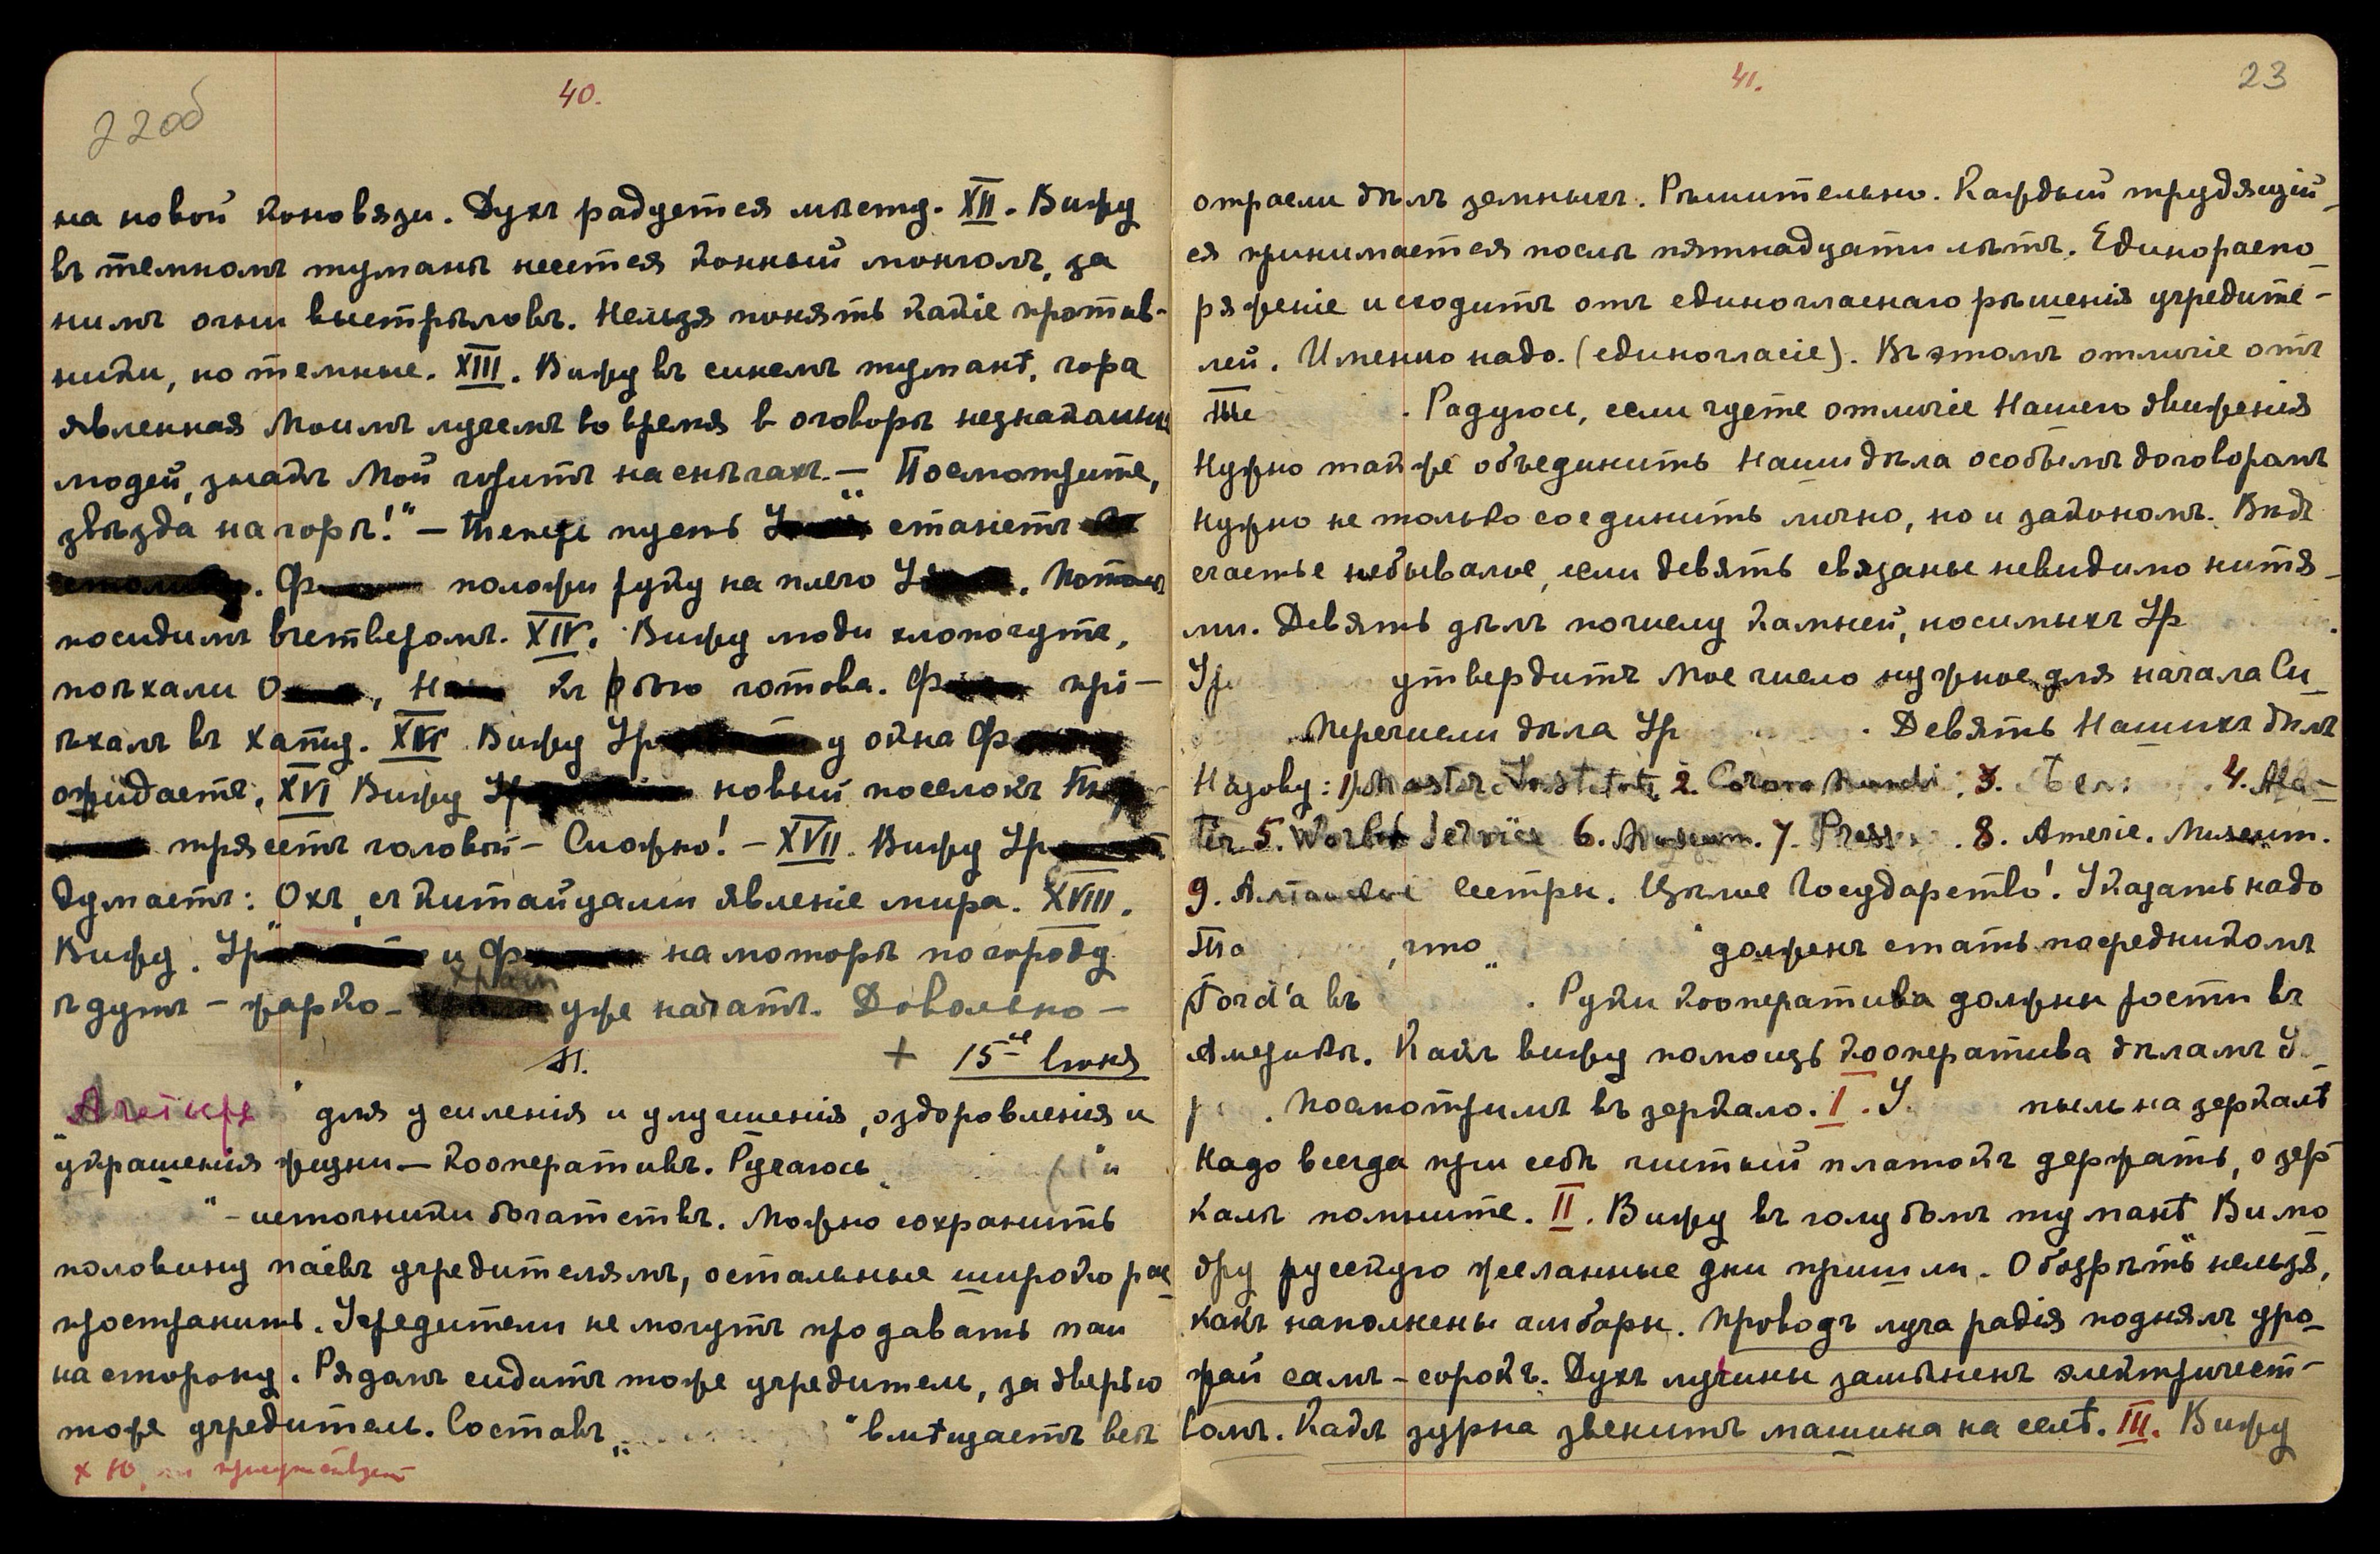 40.
22об
на новой коновязи. Духъ радуется мѣсту. XII. Вижу
въ темномъ туманѣ несется конный монголъ, за
нимъ огни выстрѣловъ. Нельзя понять какіе против-
ники, но темные. XIII. Вижу въ синемъ туманѣ, гора
явленная Моимъ лучемъ во время в оговорѣ
людей, знакъ Мой горитъ на снѣгахъ. — Посмотрите,
звѣзда на горѣ!" — Теперь пусть У станетъ
. Ф положи руку на плечо У . Потомъ
посидимъ вчетверомъ. XIV. Вижу люди хлопочутъ,
поѣхали О , Н къ бою готова. Ф прі-
ѣхалъ въ хату. XV Вижу Ур у окна Ф
ожидаетъ. XVI Вижу Ур новый поселокъ Т
трясетъ головой — Сложно! — XVII. Вижу Ур
думаетъ: Охъ, съ китайцами явленіе мира. XVIII.
Вижу. Ур и Ф на моторѣ по городу
ѣдутъ — жарко — храм уже начатъ. Довольно —
+ 15е Іюня
Алатырь" для усиленія и улучшенія, оздоровленія и
украшенія жизни — Кооперативъ. Ручаюсь „ " и
" — источники богатствъ. Можно сохранить
половину паевъ учредителямъ, остальные широко рас-
пространить. Учредители не могутъ продавать паи
на сторону. Рядомъ сидитъ тоже учредитель, за дверью
тоже учредитель. Составъ „ " вмѣщаетъ всѣ
х Ю. присутствует
41.
23
отрасли дѣлъ земныхъ. Рѣшительно. Каждый трудящій-
ся принимается послѣ пятнадцати лѣтъ. Единораспо-
ряженіе исходитъ отъ единогласнаго рѣшенія учредите-
лей. Именно надо. (единогласіе). Въ этомъ отличіе отъ
Те . Радуюсь, если чуете отличіе Нашего движенія
Нужно также объединить Наши дѣла особымъ договоромъ
Нужно не только соединить лично, но и закономъ. Вѣдь
счастье небывалое, если девять связаны невидимо нитя-
ми. Девять дѣлъ по числу Камней, носимыхъ Ур .
Ур утвердитъ Мое число нужное для начала Си_
. Перечисли дѣла Ур . Девять Нашихъ дѣлъ
Назову: 1) Master Institute, 2. Corona Mundi, 3. Бел . 4. Ala-
tir 5. World Service 6. Museum. 7. Press . 8. Americ. Museum.
9. Алтайскіе сестры. Цѣлое Государство! Указать надо
Та , что „ " долженъ стать посредникомъ
Ford'а въ . Руки Кооператива должны рости въ
Америкѣ. Какъ вижу помощь Кооператива дѣламъ У_
р . Посмотримъ въ зеркало. I. У. пыль на зеркалѣ
Надо всегда при себѣ чистый платокъ держать, о зер-
калѣ помните. II. Вижу въ голубомъ туманѣ Вижо
дру русскую желанные дни пришли. Обозрѣть нельзя,
какъ наполнены амбары. Проводъ луча радія поднялъ уро-
жай самъ-сорокъ. Духъ лучины замѣненъ электричест-
вомъ. Какъ зурна звенитъ машина на селѣ. III. Вижу